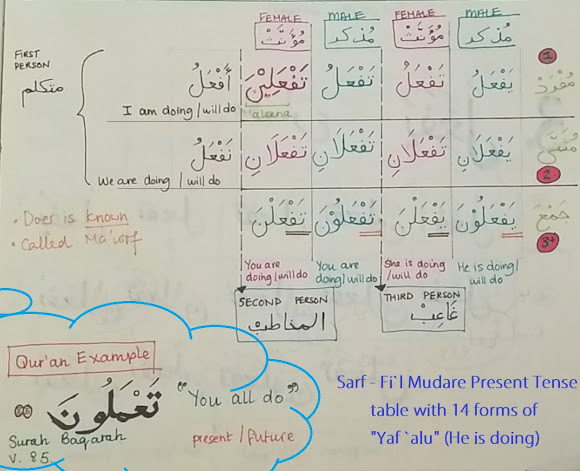 FEMALE MALE FEMALE MALE
مُؤَنَّثْ مُذَكَر مُؤَنَّثْ مُذَكَر
FIRST
PERSON
متكلم
1
أَفْعَلُ تَفْعَلِيْنَ تَفْعَلُ تَفْعَلُ يَفْعَلُ مُفْرَدْ
I am doing / will do
'aleena
نَفْعَلُ تَفْعَلَانِ تَفْعَلَانِ تَفْعَلَانِ يَفْعَلَانِ مُثَنَّى
We are doing / will do
2
تَفْعَلْنَ تَفْعَلُوْنَ يَفْعَلْنَ يَفْعَلُوْنَ جَمْعَ
3+
• Doer is known
• Called Ma'roof
You are doing/will do
You are doing/will do
She is doing /will do
He is doing/ will do
SECOND PERSON
المخاطب
THIRD PERSON
غَاعِبْ
Qur'an Example
تَعْمَلُونَ "You all do"
Surah Baqarah
V. 85.
present / future
Sarf - Fi`l Mudare Present Tense
table with 14 forms of
"Yaf `alu" (He is doing)